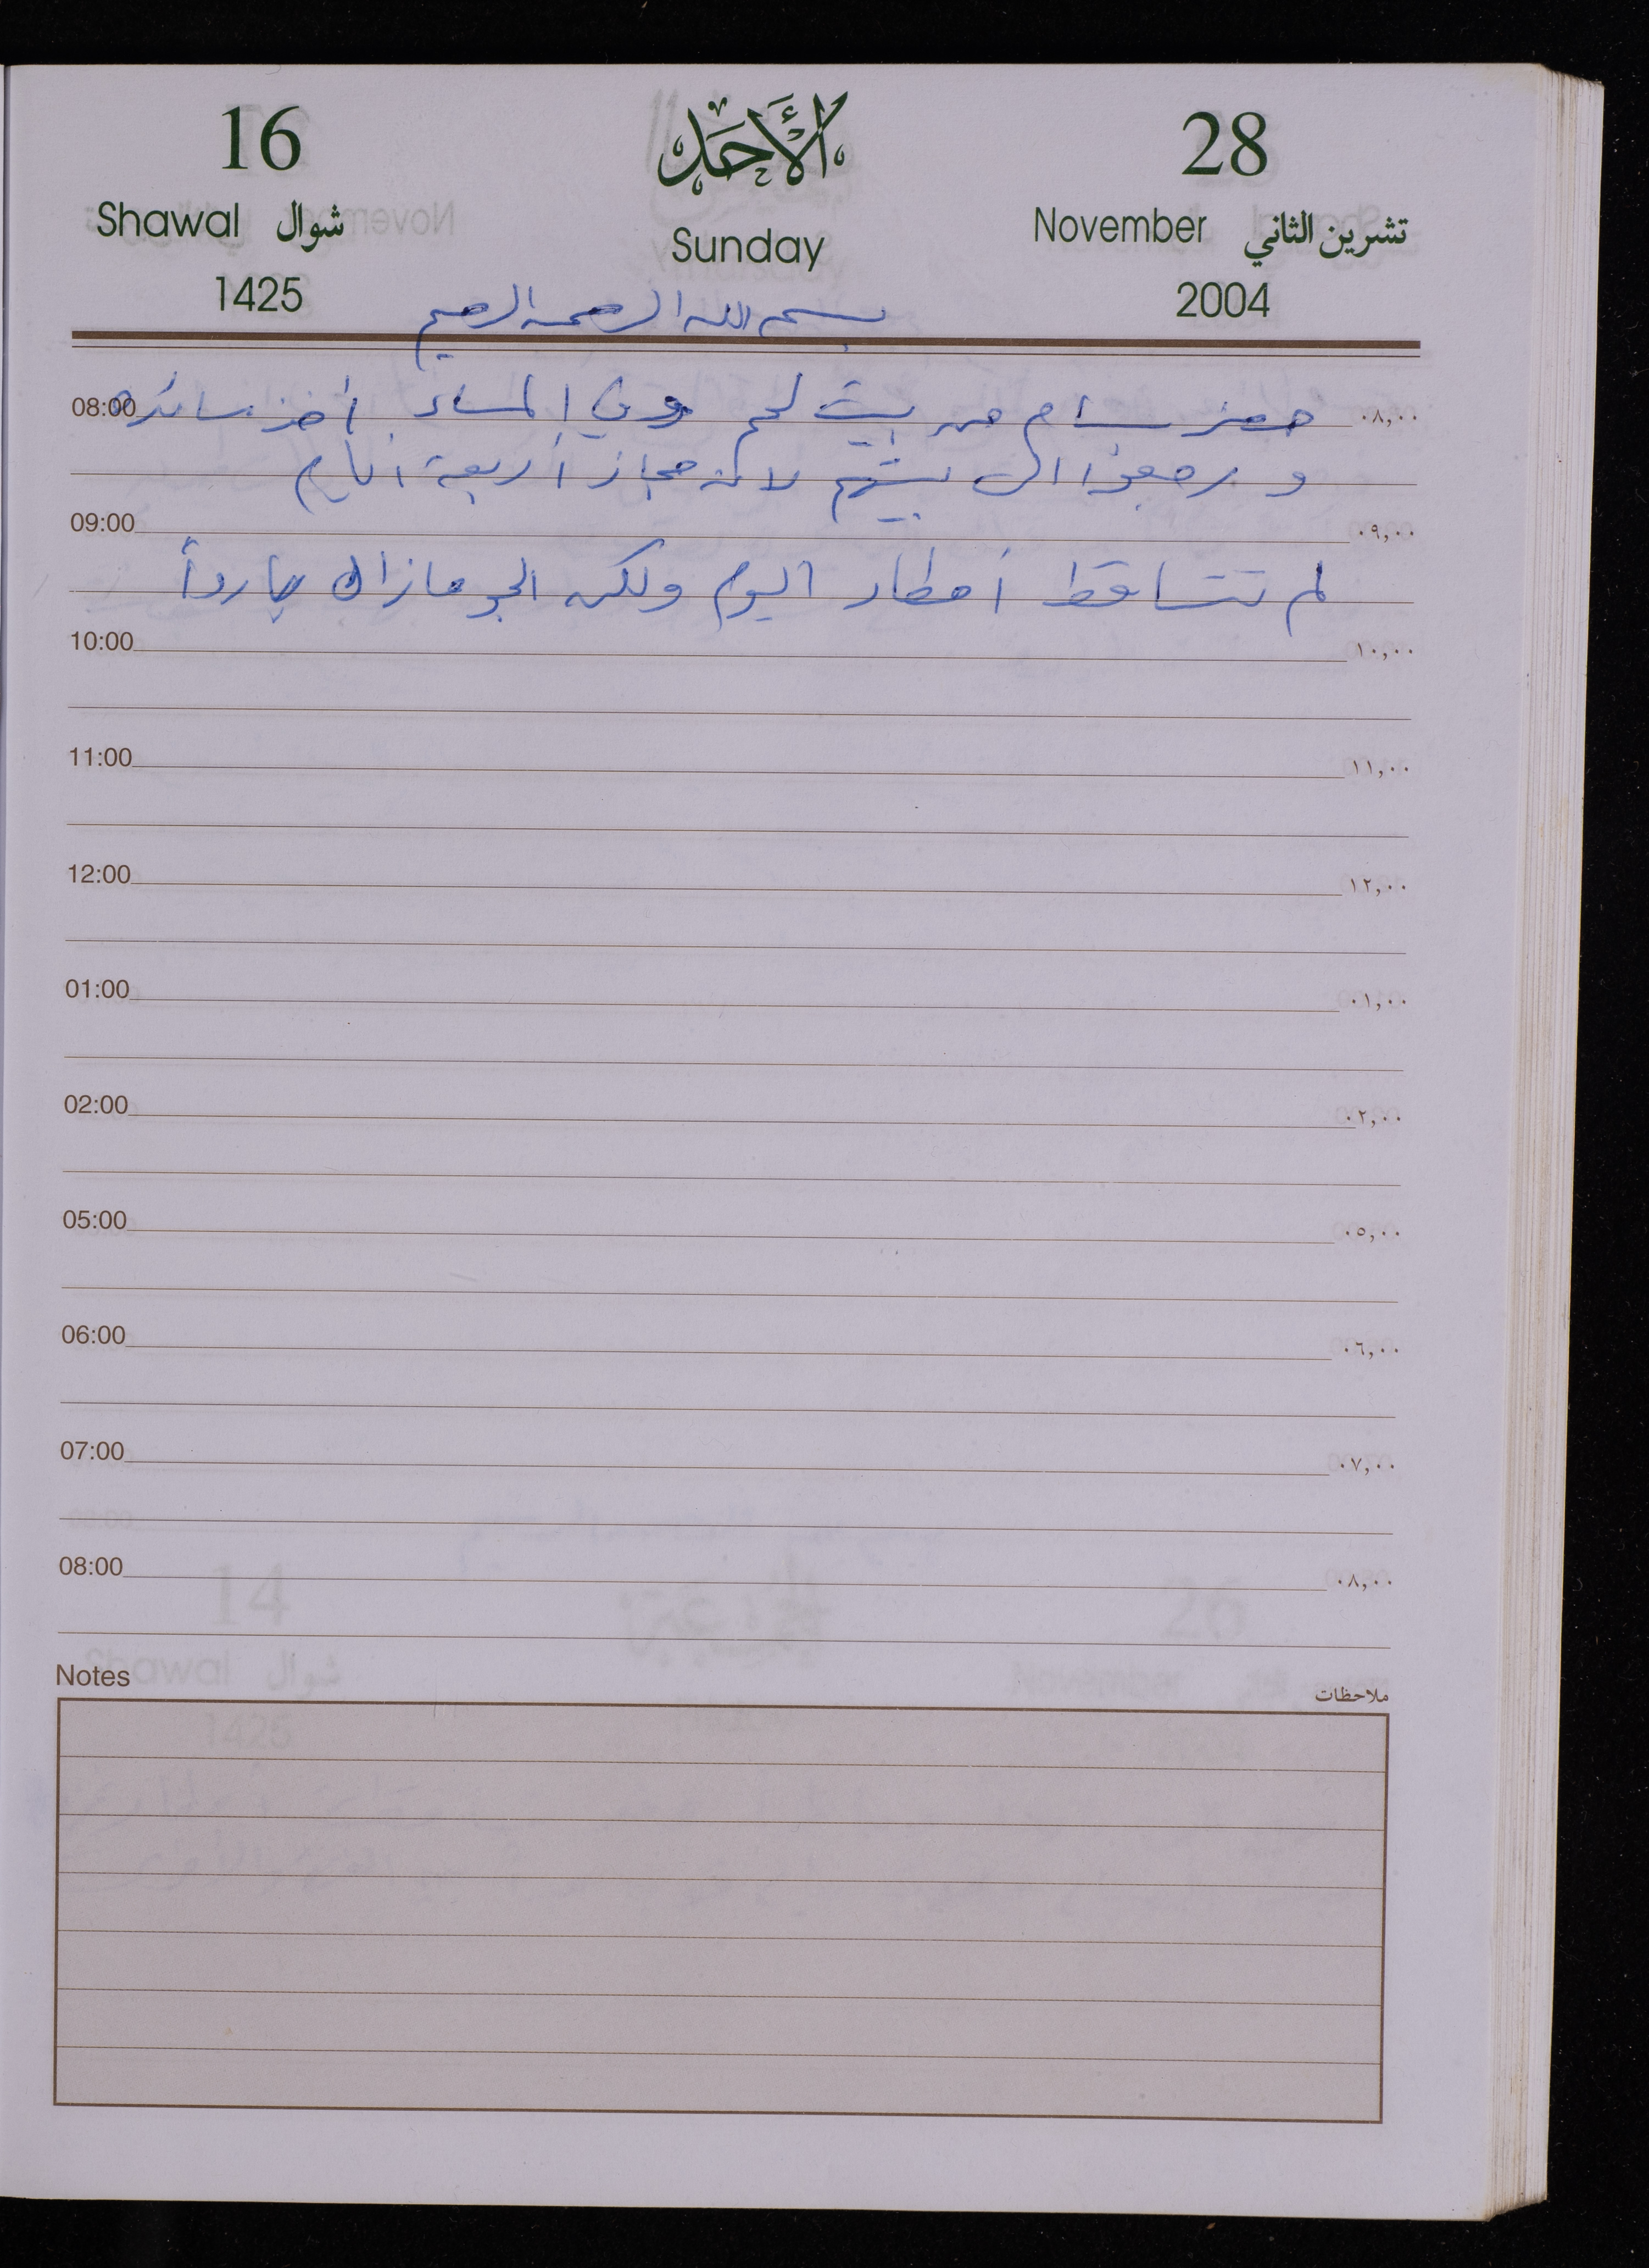 16 الأحد 28
Shawal شوال Sunday November تشرين الثاني
1425 2004
بسم الله الرحمن الرحيم
حضر بسام من بيت لحم وفي المساء أخذ سائده
08:00 ٠٨,٠٠
و رجعوا الى بيتهم لانه مجاز أربعة أيام
09:00 ٠٩,٠٠
لم تتساقط أمطار اليوم ولكن الجو مازال بارداً
10:00 ١٠,٠٠
11:00 ١١,٠٠
12:00 ١٢,٠٠
01:00 ٠١,٠٠
02:00 ٠٢,٠٠
05:00 ٠٥,٠٠
06:00 ٠٦,٠٠
07:00 ٠٧,٠٠
08:00 ٠٨,٠٠
Notes ملاحظات